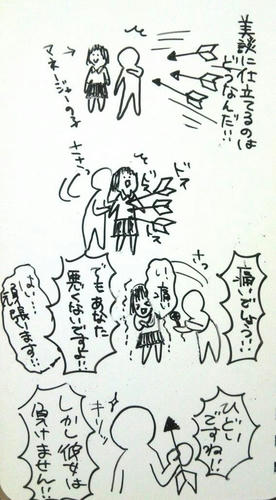 美談に仕立てるのは
どうなんだ!!
マネージャーの子
ささっ
ドス
ドス
さっ
痛いでしょうっ!!
い…痛い
でもあなた
悪くないですよ!!
はい…
頑張ります!!
ひどい
ですね!!
キリッ
しかし彼女は
負けません!!